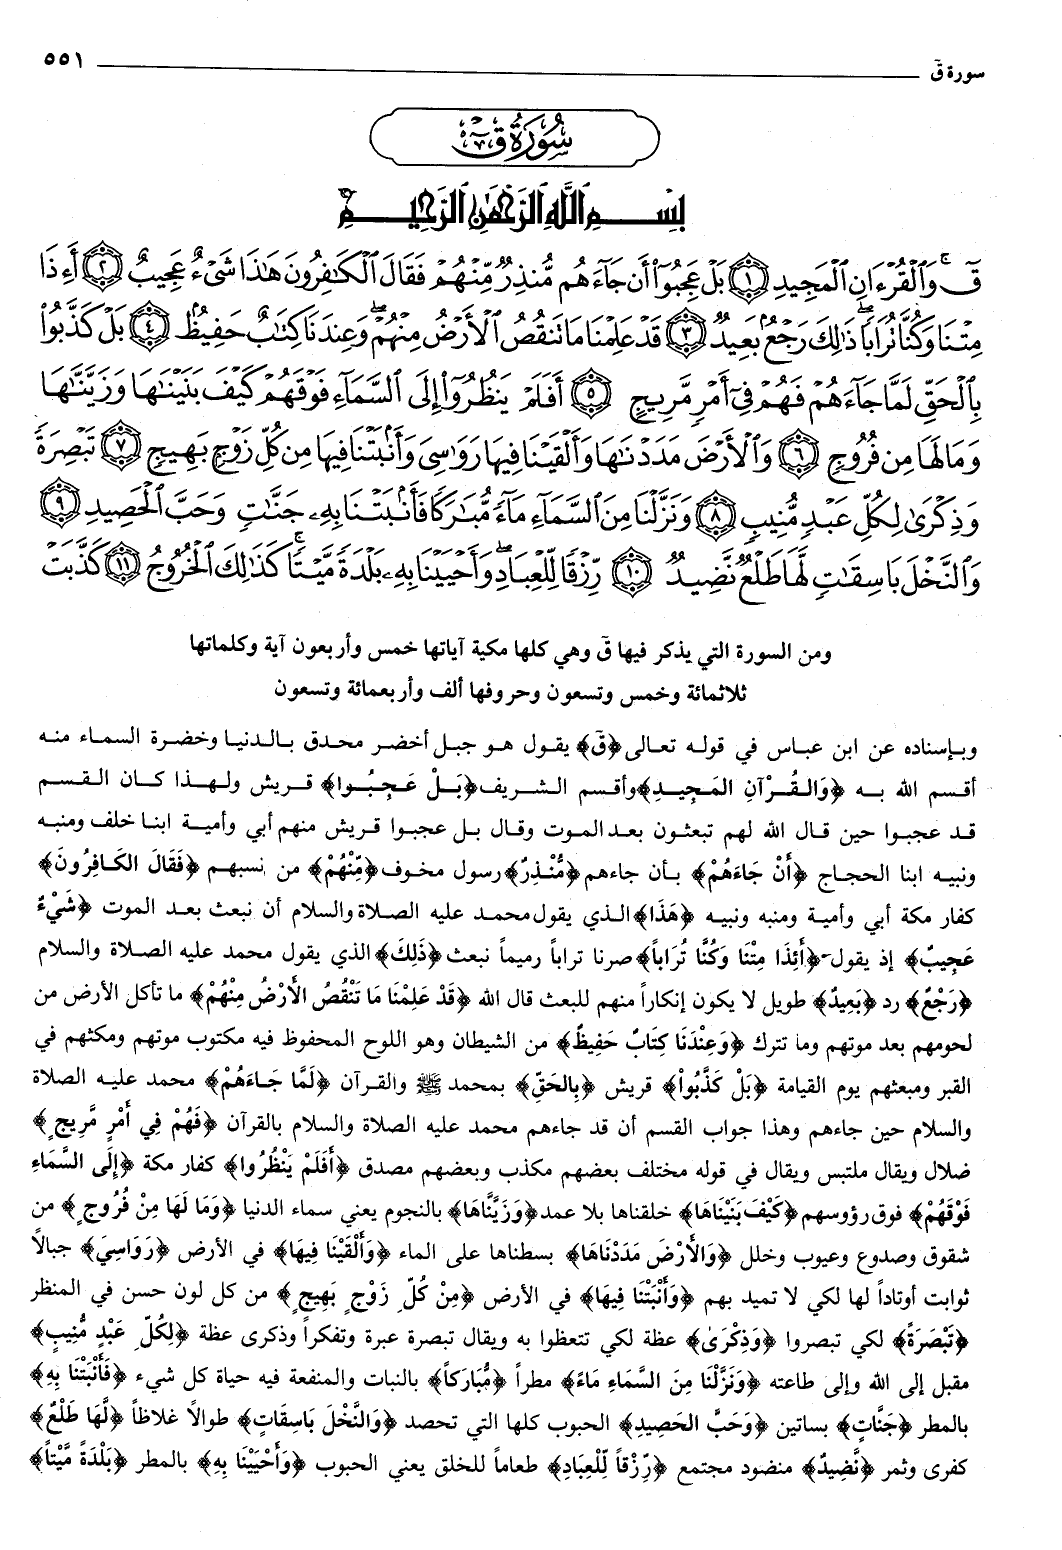 سورة قۤ ٥٥١
سُورَةُ قۤ
بِسْمِ ٱللَّهِ ٱلرَّحْمَٰنِ ٱلرَّحِيمِ
قۤ ۚ وَٱلْقُرْءَانِ ٱلْمَجِيدِ ١ بَلْ عَجِبُوٓا۟ أَن جَآءَهُم مُّنذِرٌ مِّنْهُمْ فَقَالَ ٱلْكَٰفِرُونَ هَٰذَا شَىْءٌ عَجِيبٌ ٢ أَءِذَا
مِتْنَا وَكُنَّا تُرَابًا ۖ ذَٰلِكَ رَجْعٌۢ بَعِيدٌ ٣ قَدْ عَلِمْنَا مَا تَنقُصُ ٱلْأَرْضُ مِنْهُمْ ۖ وَعِندَنَا كِتَٰبٌ حَفِيظٌۢ ٤ بَلْ كَذَّبُوا۟
بِٱلْحَقِّ لَمَّا جَآءَهُمْ فَهُمْ فِىٓ أَمْرٍ مَّرِيجٍ ٥ أَفَلَمْ يَنظُرُوٓا۟ إِلَى ٱلسَّمَآءِ فَوْقَهُمْ كَيْفَ بَنَيْنَٰهَا وَزَيَّنَّٰهَا
وَمَا لَهَا مِن فُرُوجٍ ٦ وَٱلْأَرْضَ مَدَدْنَٰهَا وَأَلْقَيْنَا فِيهَا رَوَٰسِىَ وَأَنۢبَتْنَا فِيهَا مِن كُلِّ زَوْجٍۭ بَهِيجٍ ٧ تَبْصِرَةً
وَذِكْرَىٰ لِكُلِّ عَبْدٍ مُّنِيبٍ ٨ وَنَزَّلْنَا مِنَ ٱلسَّمَآءِ مَآءً مُّبَٰرَكًا فَأَنۢبَتْنَا بِهِۦ جَنَّٰتٍ وَحَبَّ ٱلْحَصِيدِ ٩
وَٱلنَّخْلَ بَاسِقَٰتٍ لَّهَا طَلْعٌ نَّضِيدٌ ١٠ رِّزْقًا لِّلْعِبَادِ ۖ وَأَحْيَيْنَا بِهِۦ بَلْدَةً مَّيْتًا ۚ كَذَٰلِكَ ٱلْخُرُوجُ ١١ كَذَّبَتْ
ومن السورة التي يذكر فيها قۤ وهي كلها مكية آياتها خمس وأربعون آية وكلماتها
ثلاثمائة وخمس وتسعون وحروفها ألف وأربعمائة وتسعون
وبإسناده عن ابن عباس في قوله تعالى ﴿قۤ﴾ يقول هو جبل أخضر محدق بالدنيا وخضرة السماء منه
أقسم الله به ﴿وَالقُرْآنِ المَجِيدِ﴾ وأقسم الشريف ﴿بَلْ عَجِبُوا﴾ قريش ولهذا كان القسم
قد عجبوا حين قال الله لهم تبعثون بعد الموت وقال بل عجبوا قريش منهم أبي وأمية ابنا خلف ومنبه
ونبيه ابنا الحجاج ﴿أَنْ جَاءَهُمْ﴾ بأن جاءهم ﴿مُّنْذِرٌ﴾ رسول مخوف ﴿مِّنْهُمْ﴾ من نسبهم ﴿فَقَالَ الكَافِرُونَ﴾
كفار مكة أبي وأمية ومنبه ونبيه ﴿هَذَا﴾ الذي يقول محمد عليه الصلاة والسلام أن نبعث بعد الموت ﴿شَيْءٌ
عَجِيبٌ﴾ إذ يقول ﴿أَئِذَا مِتْنَا وَكُنَّا تُرَاباً﴾ صرنا تراباً رميماً نبعث ﴿ذَلِكَ﴾ الذي يقول محمد عليه الصلاة والسلام
﴿رَجْعٌ﴾ رد ﴿بَعِيدٌ﴾ طويل لا يكون إنكاراً منهم للبعث قال الله ﴿قَدْ عَلِمْنَا مَا تَنْقُصُ الأَرْضُ مِنْهُمْ﴾ ما تأكل الأرض من
لحومهم بعد موتهم وما تترك ﴿وَعِنْدَنَا كِتَابٌ حَفِيظٌ﴾ من الشيطان وهو اللوح المحفوظ فيه مكتوب موتهم ومكثهم في
القبر ومبعثهم يوم القيامة ﴿بَلْ كَذَّبُواْ﴾ قريش ﴿بِالحَقِّ﴾ بمحمد ﷺ والقرآن ﴿لَمَّا جَاءَهُمْ﴾ محمد عليه الصلاة
والسلام حين جاءهم وهذا جواب القسم أن قد جاءهم محمد عليه الصلاة والسلام بالقرآن ﴿فَهُمْ فِي أَمْرٍ مَّرِيجٍ﴾
ضلال ويقال ملتبس ويقال في قوله مختلف بعضهم مكذب وبعضهم مصدق ﴿أَفَلَمْ يَنْظُرُوا﴾ كفار مكة ﴿إِلَى السَّمَاءِ
فَوْقَهُمْ﴾ فوق رؤوسهم ﴿كَيْفَ بَنَيْنَاهَا﴾ خلقناها بلا عمد ﴿وَزَيَّنَّاهَا﴾ بالنجوم يعني سماء الدنيا ﴿وَمَا لَهَا مِنْ فُرُوجٍ﴾ من
شقوق وصدوع وعيوب وخلل ﴿وَالأَرْضَ مَدَدْنَاهَا﴾ بسطناها على الماء ﴿وَأَلْقَيْنَا فِيهَا﴾ في الأرض ﴿رَوَاسِيَ﴾ جبالاً
ثوابت أوتاداً لها لكي لا تميد بهم ﴿وَأَنْبَتْنَا فِيهَا﴾ في الأرض ﴿مِنْ كُلِّ زَوْجٍ بَهِيجٍ﴾ من كل لون حسن في المنظر
﴿تَبْصِرَةً﴾ لكي تبصروا ﴿وَذِكْرَىٰ﴾ عظة لكي تتعظوا به ويقال تبصرة عبرة وتفكراً وذكرى عظة ﴿لِكُلِّ عَبْدٍ مُّنِيبٍ﴾
مقبل إلى الله وإلى طاعته ﴿وَنَزَّلْنَا مِنَ السَّمَاءِ مَاءً﴾ مطراً ﴿مُّبَارَكاً﴾ بالنبات والمنفعة فيه حياة كل شيء ﴿فَأَنْبَتْنَا بِهِ﴾
بالمطر ﴿جَنَّاتٍ﴾ بساتين ﴿وَحَبَّ الحَصِيدِ﴾ الحبوب كلها التي تحصد ﴿وَالنَّخْلَ بَاسِقَاتٍ﴾ طوالاً غلاظاً ﴿لَّهَا طَلْعٌ﴾
كفرى وثمر ﴿نَّضِيدٌ﴾ منضود مجتمع ﴿رِّزْقاً لِّلْعِبَادِ﴾ طعاماً للخلق يعني الحبوب ﴿وَأَحْيَيْنَا بِهِ﴾ بالمطر ﴿بَلْدَةً مَّيْتاً﴾